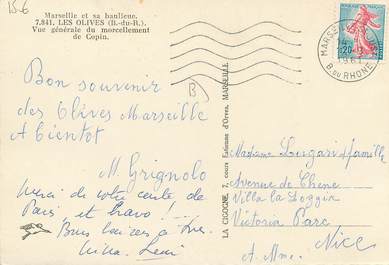 15-6
Marseille et sa banlieue.
7.841. LES OLIVES (B.-du-R.).
Vue générale du morcellement
de Copin.
B
Bon souvenir
des Olives Marseille
A bientot
M. Grignolo
Merci de votre carte de
Paris et bravo !..
LA CIGOGNE, 7, cours Estienne d'Orves, MARSEILLE
MARSE
20-
1961
B. DU RHONE
Madame Lugari & famille
Avenue de Chene
Villa la Loggia
Victoria Parc
Nice
A. Mmes